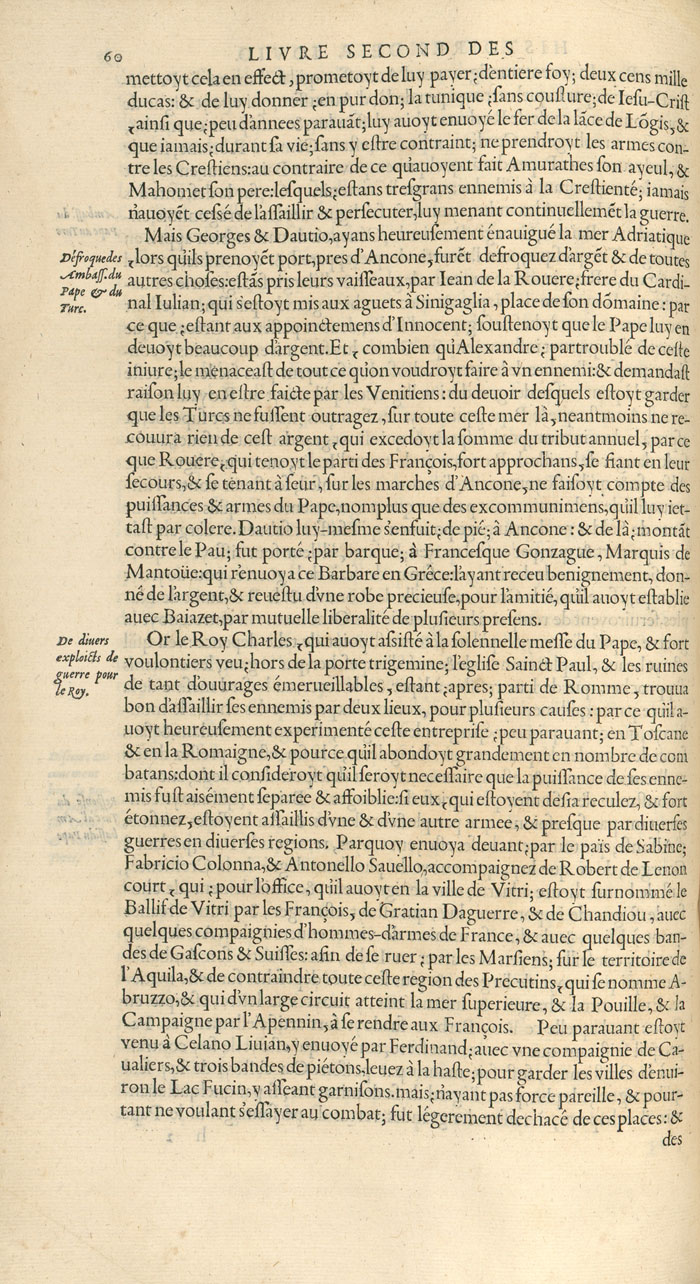 60
LIVRE SECOND DES
mettoyt cela en effect, prometoyt de luy payer; d'entiere foy; deux cens mille
ducas: & de luy donner ;en pur don; la tunique ;sans cousture; de Iesu-Crist
,ainsi que; peu d'annees parauāt; luy auoyt enuoyé le fer de la lāce de Lōgis, &
que iamais; durant sa vie; sans y estre contraint; ne prendroyt les armes con-
tre les Crestiens: au contraire de ce qu'auoyent fait Amurathes son ayeul, &
Mahomet son pere: lesquels; estans tresgrans ennemis à la Crestienté; iamais
n'auoyēt cessé de l'assaillir & persecuter, luy menant continuellemēt la guerre.
Mais Georges & Dautio, ayans heureusement énauigué la mer Adriatique
Défroque des
,lors qu'ils prenoyēt port, pres d'Ancone, furēt defroquez d'argēt & de toutes
Ambass. du
autres choses: estās pris leurs vaisseaux, par Iean de la Rouere; frere du Cardi-
Pape & du
nal Iulian; qui s'estoyt mis aux aguets à Sinigaglia, place de son dōmaine: par
Turc.
ce que ;estant aux appoinctemens d'Innocent; soustenoyt que le Pape luy en
deuoyt beaucoup d'argent. Et, combien qu'Alexandre; par troublé de ceste
iniure; le menaceast de tout ce qu'on voudroyt faire à vn ennemi: & demandast
raison luy en estre faicte par les Venitiens: du deuoir desquels estoyt garder
que les Turcs ne fussent outragez, sur toute ceste mer là, neantmoins ne re-
couura rien de cest argent, qui excedoyt la somme du tribut annuel, par ce
que Rouere, qui tenoyt le parti des François, fort approchans, se fiant en leur
secours, & se tenant à seur, sur les marches d'Ancone, ne faisoyt compte des
puissances & armes du Pape, nomplus que des excommunimens, qu'il luy iet-
tast par colere. Dautio luy-mesme s'enfuit; de pié; à Ancone: & de là; montāt
contre le Pau; fut porté ;par barque; à Francesque Gonzague, Marquis de
Mantoüe: qui r'enuoya ce Barbare en Grêce: l'ayant receu benignement, don-
né de l'argent, & reuestu d'vne robe precieuse, pour l'amitié, qu'il auoyt establie
auec Baiazet, par mutuelle liberalité de plusieurs presens.
De diuers
Or le Roy Charles, qui auoyt assisté à la solennelle messe du Pape, & fort
exploicts de
voulontiers veu; hors de la porte trigemine; l'eglise Sainct Paul, & les ruines
guerre pour
le Roy.
de tant d'ouurages émerueillables, estant ;apres; parti de Romme, trouua
bon d'assaillir ses ennemis par deux lieux, pour plusieurs causes: par ce qu'il a-
uoyt heureusement experimenté ceste entreprise ;peu parauant; en Toscane
& en la Romaigne, & pource qu'il abondoyt grandement en nombre de com
batans: dont il consideroyt qu'il seroyt necessaire que la puissance de ses enne-
mis fust aisément separee & affoiblie: si eux, qui estoyent desia reculez, & fort
étonnez, estoyent assaillis d'vne & d'vne autre armee, & presque par diuerses
guerres en diuerses regions. Parquoy enuoya deuant; par le païs de Sabine;
Fabricio Colonna, & Antonello Sauello, accompaignez de Robert de Lenon
court, qui ;pour l'office, qu'il auoyt en la ville de Vitri; estoyt surnommé le
Ballif de Vitri par les François, de Gratian Daguerre, & de Chandiou, auec
quelques compaignies d'hommes-d'armes de France, & auec quelques ban-
des de Gascons & Suisses: afin de se ruer; par les Marsiens; sur le territoire de
l'Aquila, & de contraindre toute ceste region des Precutins, qui se nomme A-
bruzzo, & qui d'vn large circuit atteint la mer superieure, & la Pouille, & la
Campaigne par l'Apennin, à se rendre aux François. Peu parauant estoyt
venu à Celano Liuian, y enuoyé par Ferdinand; auec vne compaignie de Ca-
ualiers, & trois bandes de piétons, leuez à la haste; pour garder les villes d'enui-
ron le Lac Fucin, y asseant garnisons. mais; n'ayant pas force pareille, & pour-
tant ne voulant s'essayer au combat; fut légerement dechacé de ces places: &
des